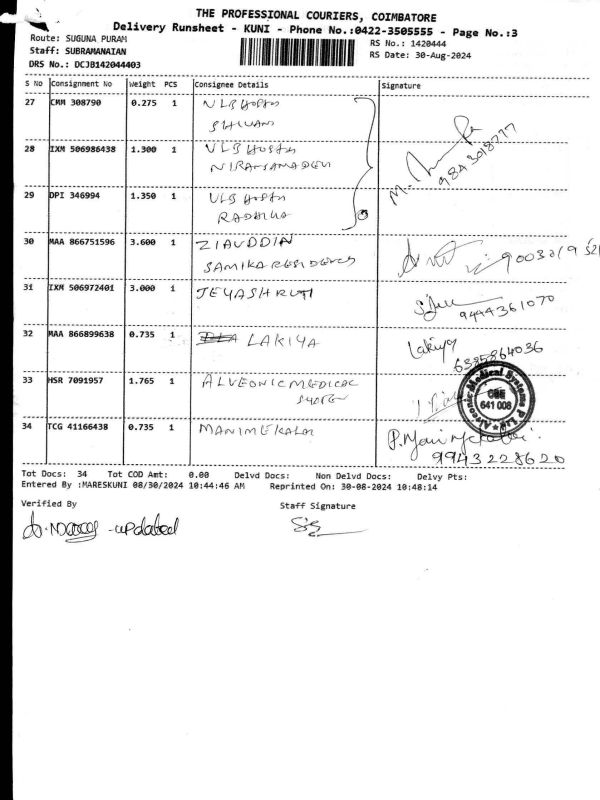 THE PROFESSIONAL COURIERS, COIMBATORE
Delivery Runsheet - KUNI - Phone No.:0422-3505555 - Page No.:3
Route: SUGUNA PURAM
RS No.: 1420444
Staff: SUBRAMANAIAN
RS Date: 30-Aug-2024
DRS No.: DCJB142044403
S No Consignment No Weight PCS Consignee Details Signature
27 CMM 308790 0.275 1 VLB Hosts
SHIVANI
28 IXM 506986438 1.300 1 VLB Hosts
NIRANJANADEVI
29 DPI 346994 1.350 1 VLB Hosts
RADHIKA
M.
30 MAA 866751596 3.600 1 ZIAUDDIN
SAMIKA RESIDENCY
31 IXM 506972401 3.000 1 JEYASHRUTI
9444361070
32 MAA 866899638 0.735 1 LAKIYA
Lakiya
6385864036
33 HSR 7091957 1.765 1 ALVEONIC MEDICAL
Alveonic Medical Systems P Ltd
CBE
641 008
34 TCG 41166438 0.735 1 MANIMEKALAI
P.Manimekalai
9943228620
Tot Docs: 34 Tot COD Amt: 0.00 Delvd Docs: Non Delvd Docs: Delvy Pts:
Entered By :MARESKUNI 08/30/2024 10:44:46 AM Reprinted On: 30-08-2024 10:48:14
Verified By
Staff Signature
-updated